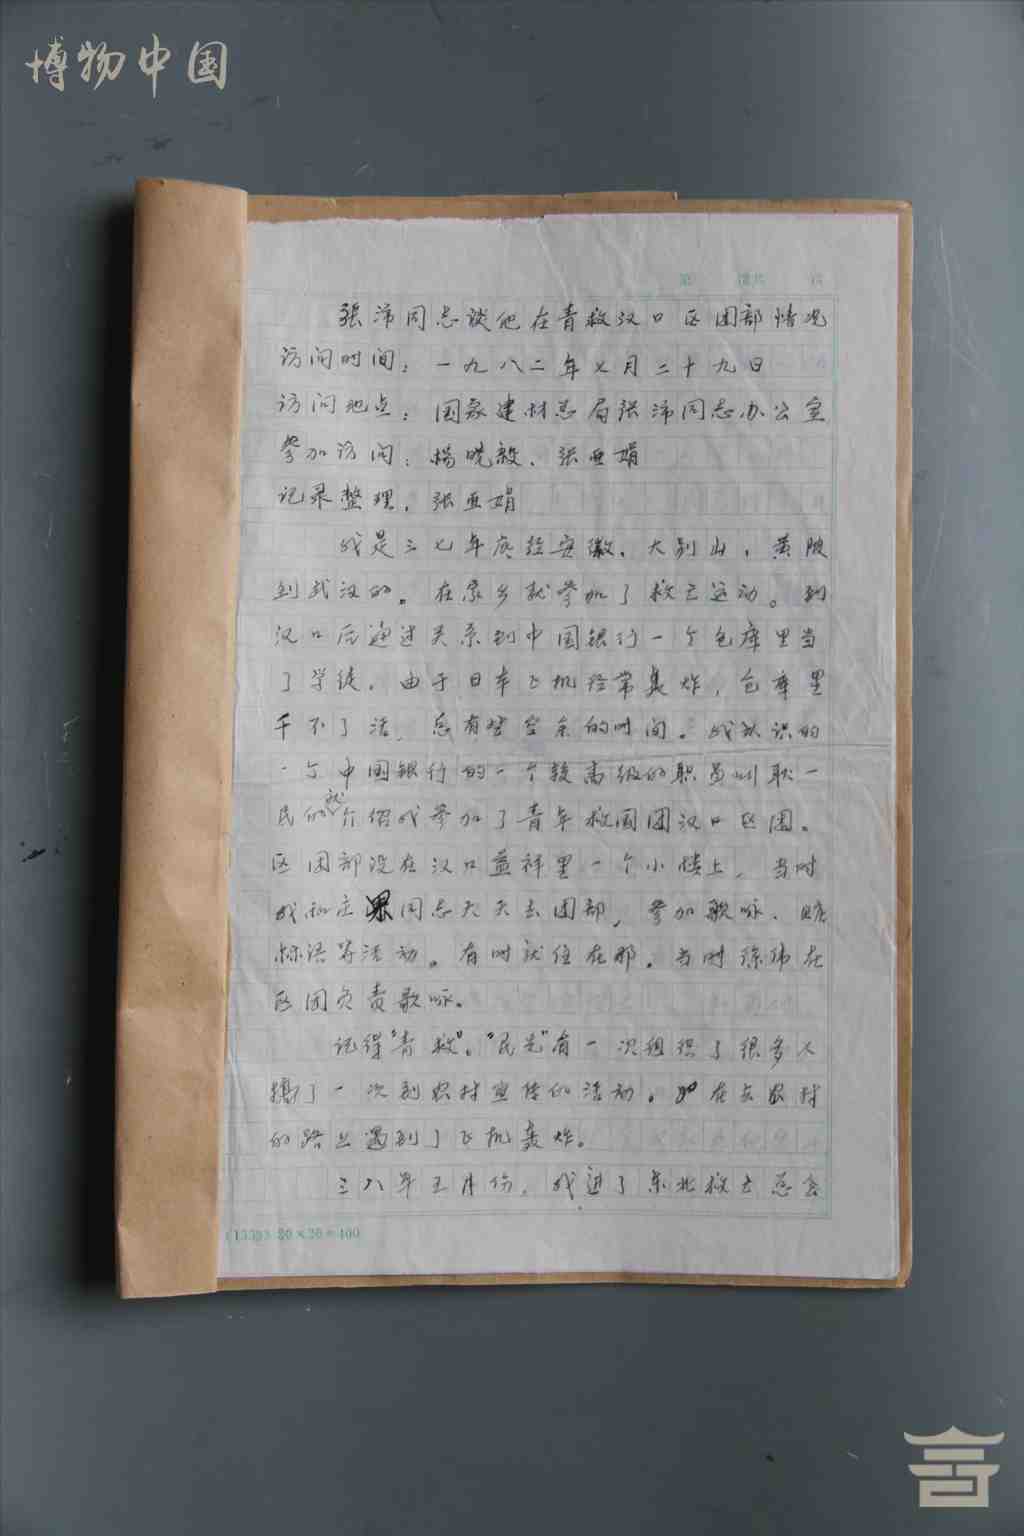 博物中国
第 页共 页
张沛同志谈他在青救汉口区团部情况
访问时间：一九八二年七月二十九日
访问地点：国家建材总局张沛同志办公室
参加访问：杨晓毅、张亚娟
记录整理：张亚娟
我是三七年底经安徽、大别山、黄陂
到武汉的。在家乡就参加了救亡运动。到
汉口后通过关系到中国银行一个仓库里当
了学徒。由于日本飞机经常轰炸，仓库里
干不了活，总有些空余的时间。我认识的
一个中国银行的一个较高级的职员叫耿一
民的就介绍我参加了青年救国团汉口区团。
区团部设在汉口益祥里一个小楼上，当时
我和庄果同志天天去团部，参加歌咏、贴
标语等活动。有时就住在那。当时徐伟在
区团负责歌咏。
记得“青救”。“民先”有一次组织了很多人
搞了一次到农村宣传的活动。在去农村
的路上遇到了飞机轰炸。
三八年五月份，我进了东北救亡总会
(1339) 20×20=400